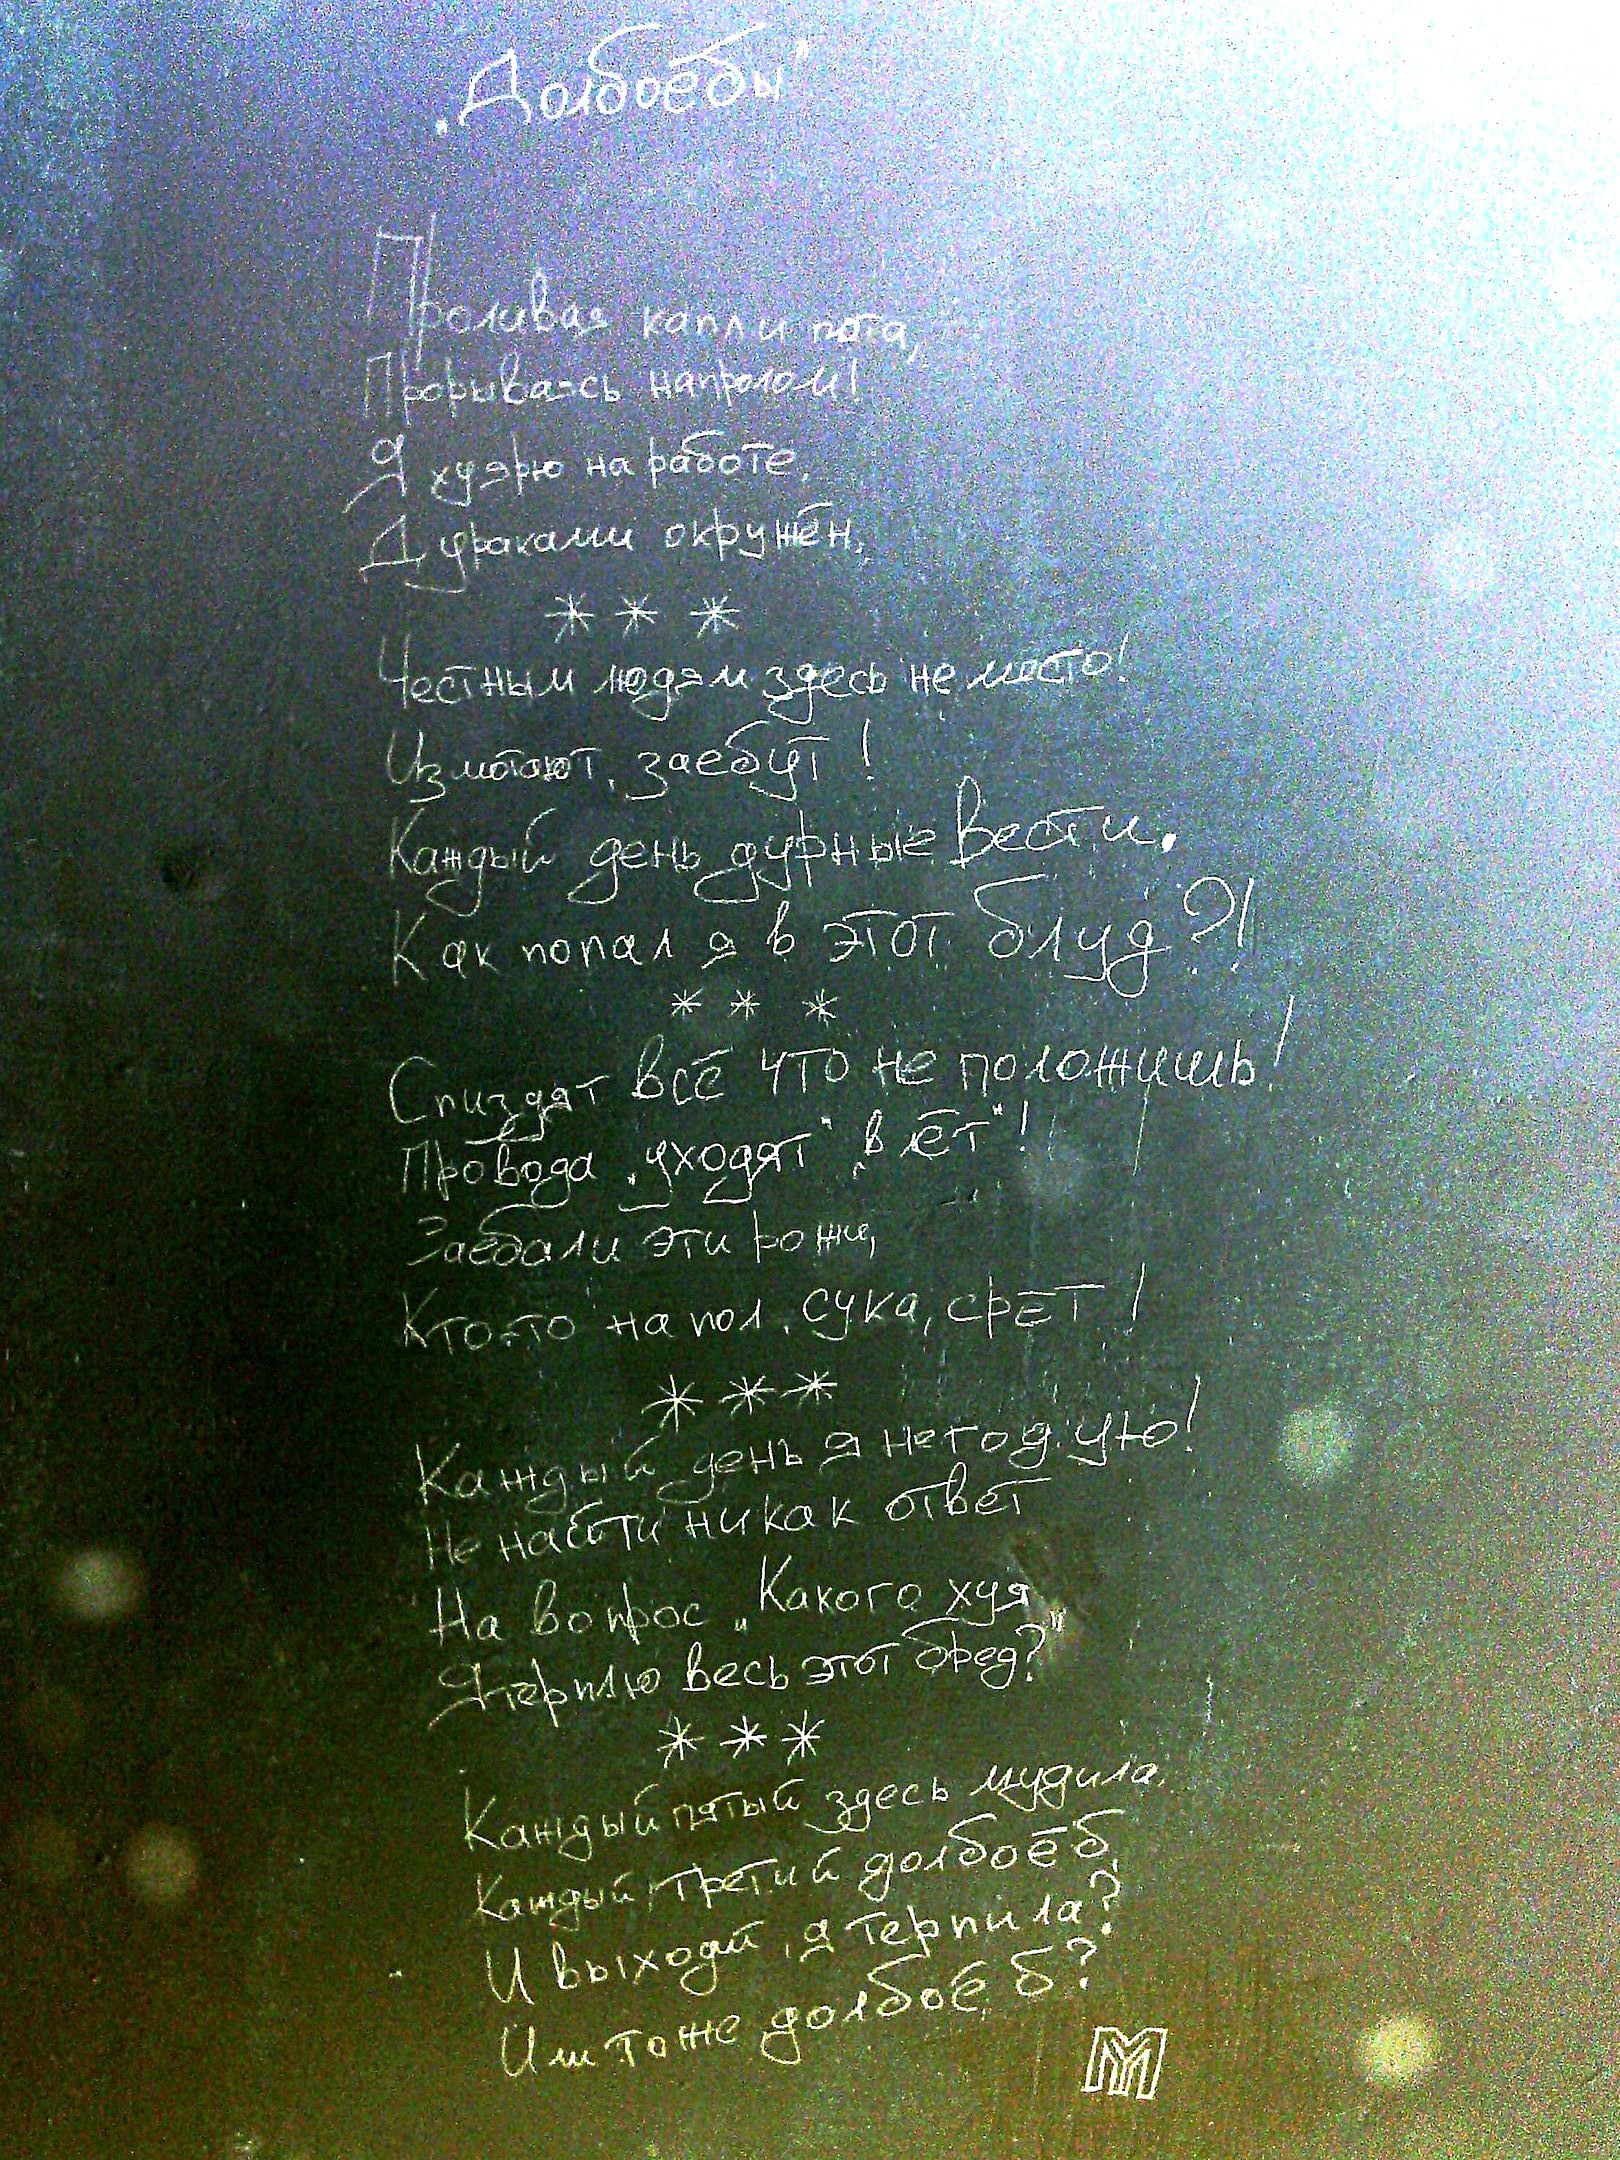 „Долбоёбы"
Проливая капли пота,
Прорываясь напролом!
Я хуярю на работе,
Дураками окружён,
* * *
Честным людям здесь не место!
Измотают, заебут!
Каждый день дурные вести.
Как попал я в этот блуд?!
* * *
Спиздят всё что не положишь!
Провода „уходят" „в лёт"!
Заебали эти рожи,
Кто-то на пол, сука, срёт!
* * *
Каждый день я негодую!
Не найти никак ответ
На вопрос „Какого хуя
Я терплю весь этот бред?"
* * *
Каждый пятый здесь мудила.
Каждый третий долбоёб,
И выходит, я терпила?
Или тоже долбоёб?